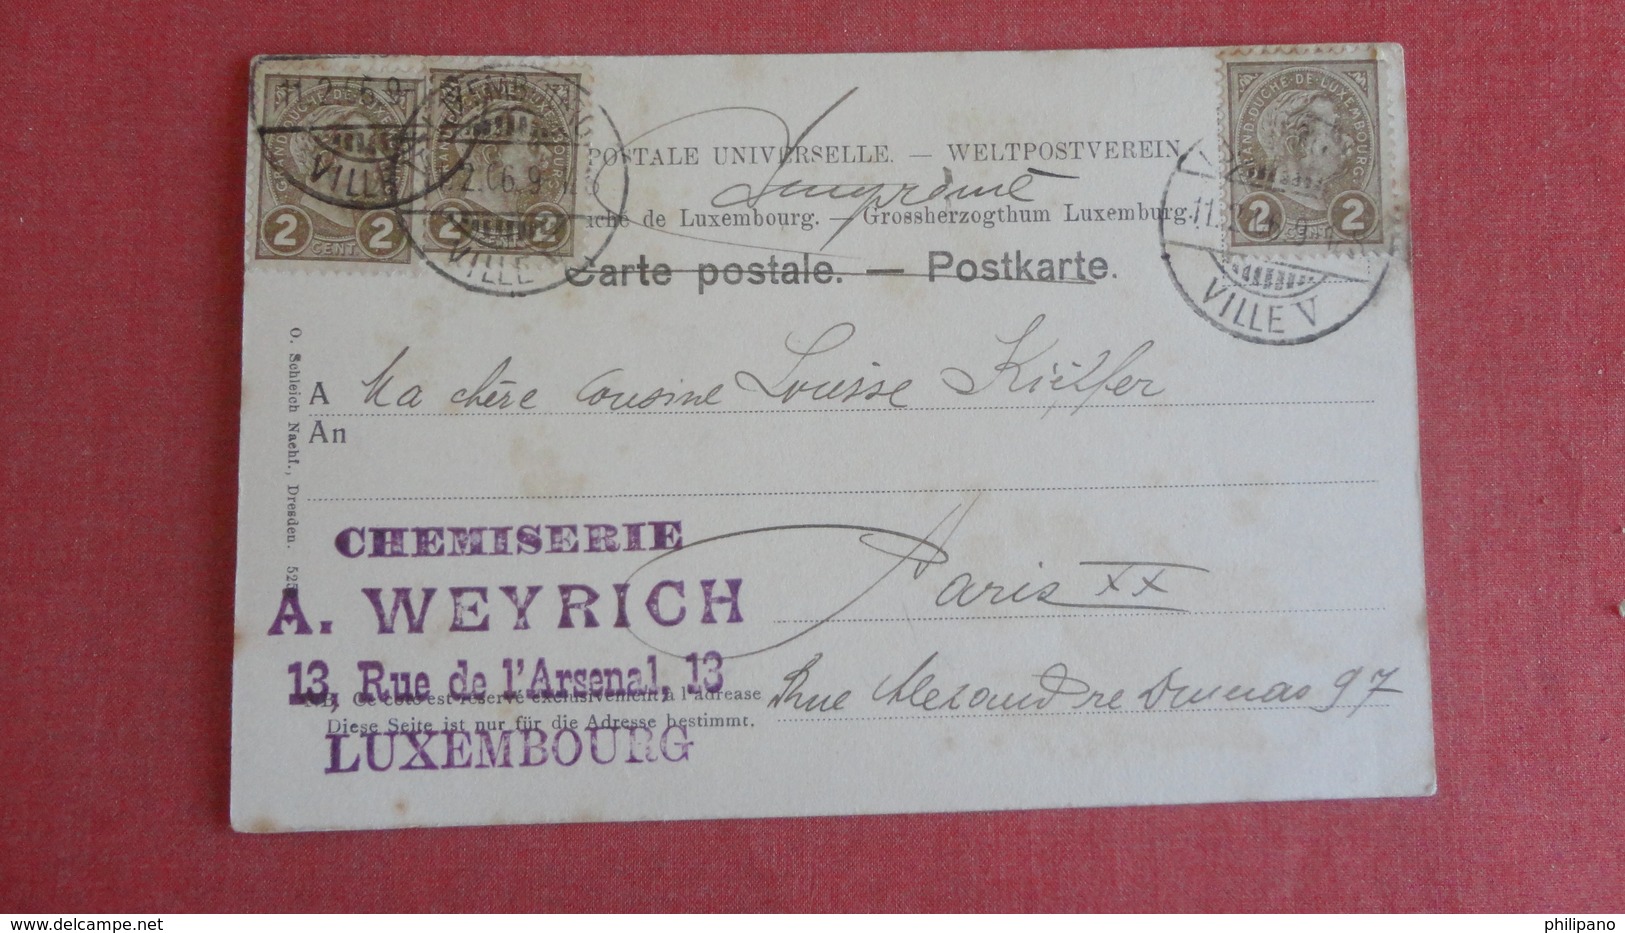 GRAND-DUCHÉ-DE-LUXEMBOURG
2 CENT 2
11.2.06.9
VILLE
2 2
2.06.9
VILLE
GRAND-DUCHÉ-DE-LUXEMBOURG
2 CENT 2
11.2.06.9
VILLE V
POSTALE UNIVERSELLE. — WELTPOSTVEREIN
Imprimé
uché de Luxembourg. — Grossherzogthum Luxemburg.
Carte postale. — Postkarte.
O. Schleich Nachf., Dresden. 525
A Ma chère cousine Louise Kieffer
An
CHEMISERIE
A. WEYRICH
13, Rue de l'Arsenal, 13
LUXEMBOURG
Paris XX
N.B. Ce côté est réservé exclusivement à l'adresse
Diese Seite ist nur für die Adresse bestimmt.
Rue Alexandre Dumas 97
philipano